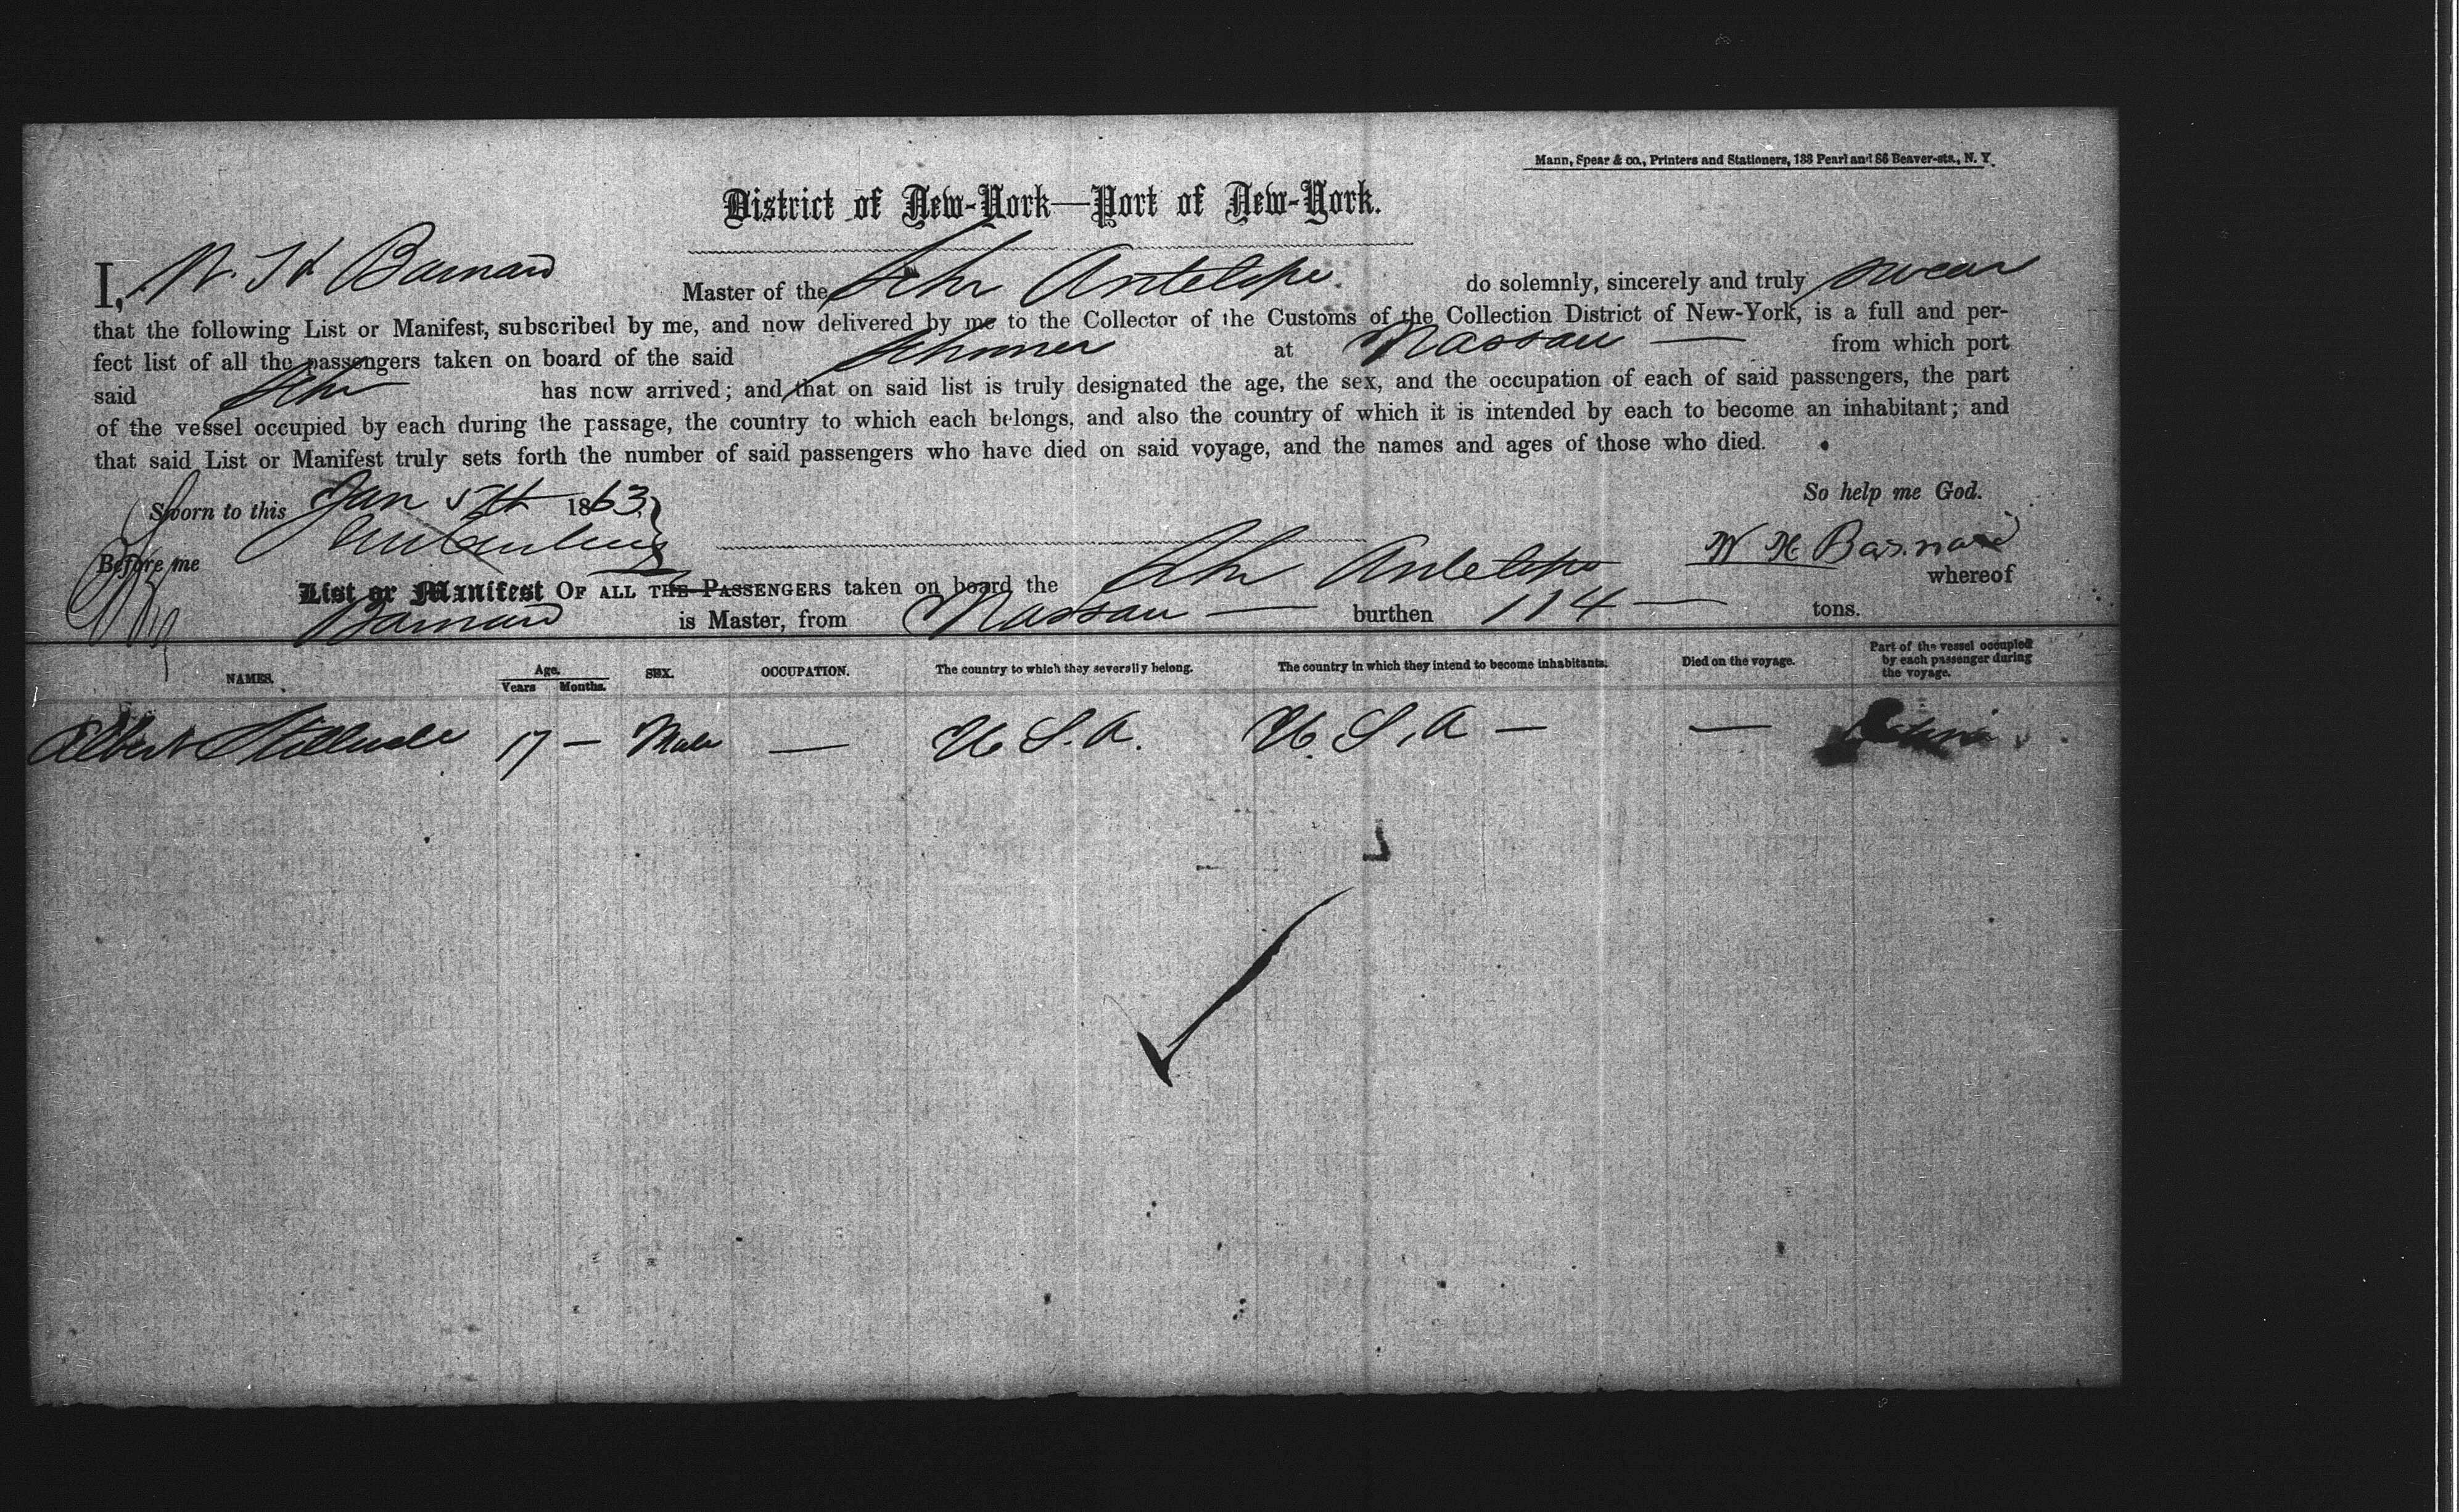 Mann, Spear & co., Printers and Stationers, 188 Pearl and 86 Beaver-sts., N. Y.
District of New-York—Port of New-York.
I, W. H Barnard Master of the Schr Antelope. do solemnly, sincerely and truly swear
that the following List or Manifest, subscribed by me, and now delivered by me to the Collector of the Customs of the Collection District of New-York, is a full and per-
fect list of all the passengers taken on board of the said Schooner at Nassau — from which port
said Schr has now arrived; and that on said list is truly designated the age, the sex, and the occupation of each of said passengers, the part
of the vessel occupied by each during the passage, the country to which each belongs, and also the country of which it is intended by each to become an inhabitant; and
that said List or Manifest truly sets forth the number of said passengers who have died on said voyage, and the names and ages of those who died.
So help me God.
Sworn to this Jan 5th 1863
Before me
W H Barnard
List or Manifest OF ALL THE PASSENGERS taken on board the Schr Antelope whereof
Barnard is Master, from Nassau — burthen 114 — tons.
NAMES. Age. Years Months. SEX. OCCUPATION. The country to which they severally belong. The country in which they intend to become inhabitants. Died on the voyage. Part of the vessel occupied by each passenger during the voyage.
Albert 17 — Male — U. S. A. U. S. A — —